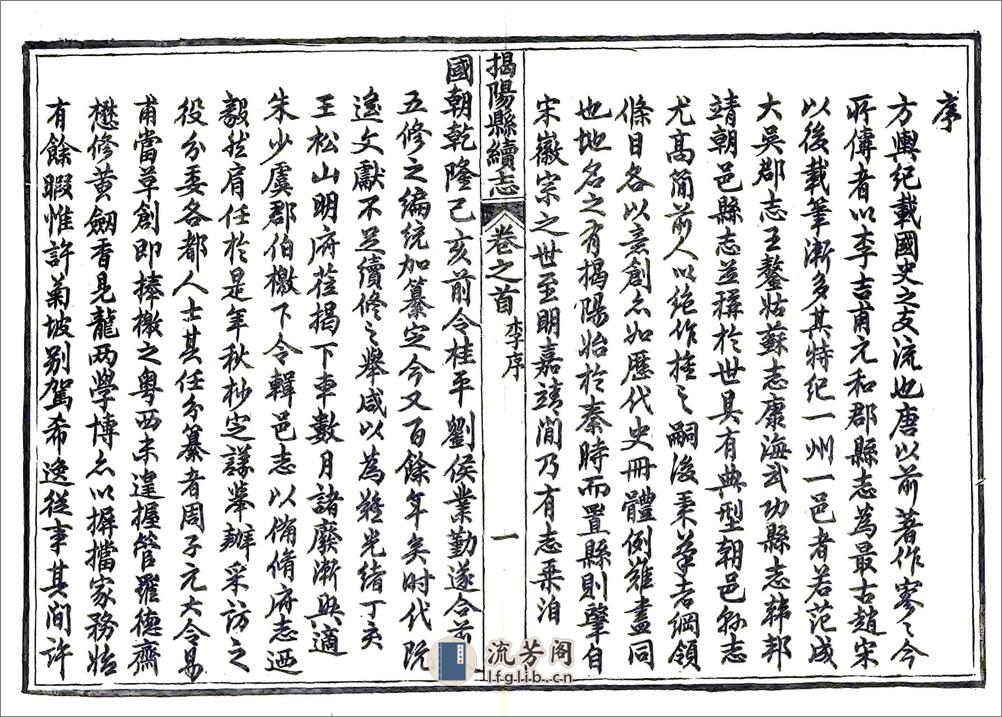 序
方輿紀載國史之支流也唐以前著作寥々今
所傳者以李吉甫元和郡縣志為最古趙宋
以後載筆漸多其特紀一州一邑者若范成
大吳郡志王鏊姑蘇志康海武功縣志韓邦
靖朝邑縣志並稱於世具有典型朝邑縣志
尤髙簡前人以絕作推之嗣後秉筆者綱領
條目各以意創亦如歷代史冊體例雖盡同
也地名之有揭陽始於秦時而置縣則肇自
宋徽宗之世至明嘉靖間乃有志乘洎
揭陽縣續志 卷之首 李序 一
國朝乾隆己亥前令桂平劉侯業勤遂合前
五修之編統加纂定今又百餘年矣時代既
遙文獻不足續修之舉咸以為難光緒丁亥
王松山明府蒞揭下車數月諸廢漸興適
朱少虞郡伯檄下令輯邑志以備脩府志迺
毅然肩任於是年秋杪定議舉辦采訪之
役分委各都人士其任分纂者周子元大令易
甫當草創即捧檄之粵西未遑握管羅德齋
懋修黃劒香見龍兩學博亦以摒擋家務尠
有餘暇惟許菊坡別駕希逸從事其間許
流芳阁
lfglib.cn